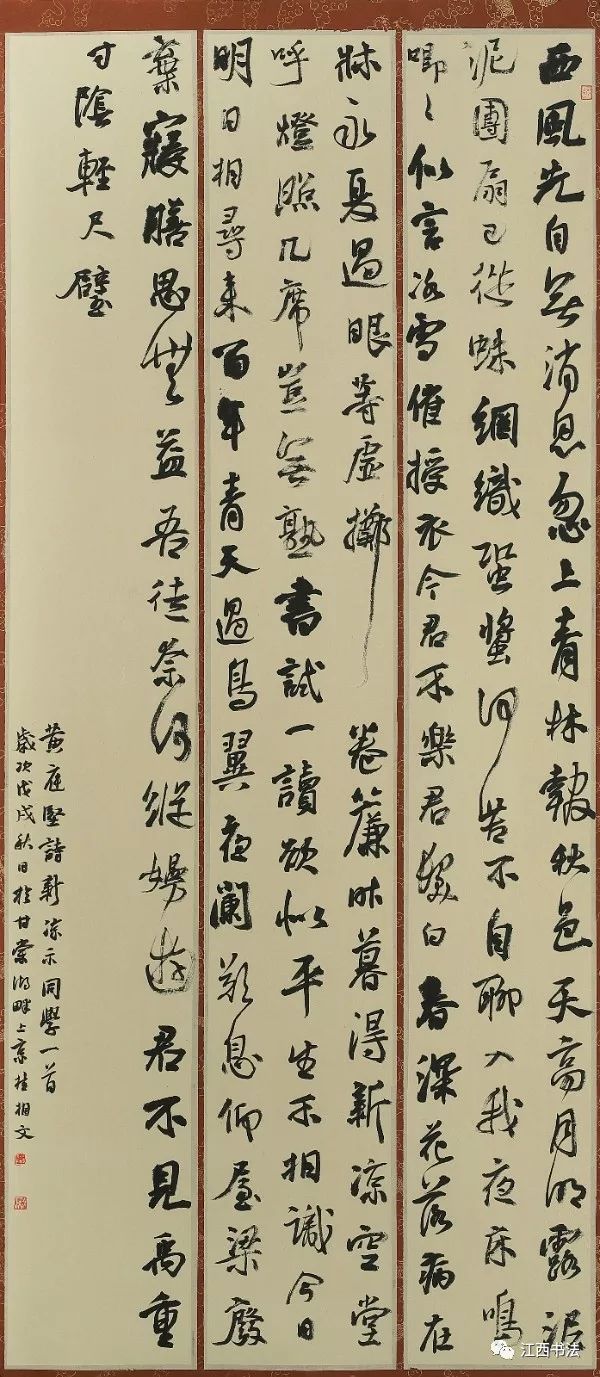 西風先自無消息忽上青林報秋色天高月明露泥
泥團扇已從蛛網織蛩螿何苦不自聊入我夜床鳴
唧〻似言冰雪催授衣今君不樂君髮白春深花落病在
牀永夏過眼等虛擲
卷簾昨暮得新涼空堂
呼燈照几席豈無熟書試一讀欲似平生不相識今日
明日相尋來百年青天過鳥翼夜闌歎息仰屋梁廢
棄寢膳思無益吾徒奈何縱嫚遊君不見禹重
寸陰輕尺璧
黃庭堅詩新涼示同學一首
歲次戊戌秋日於甘棠湖畔上京桂相文
江西书法